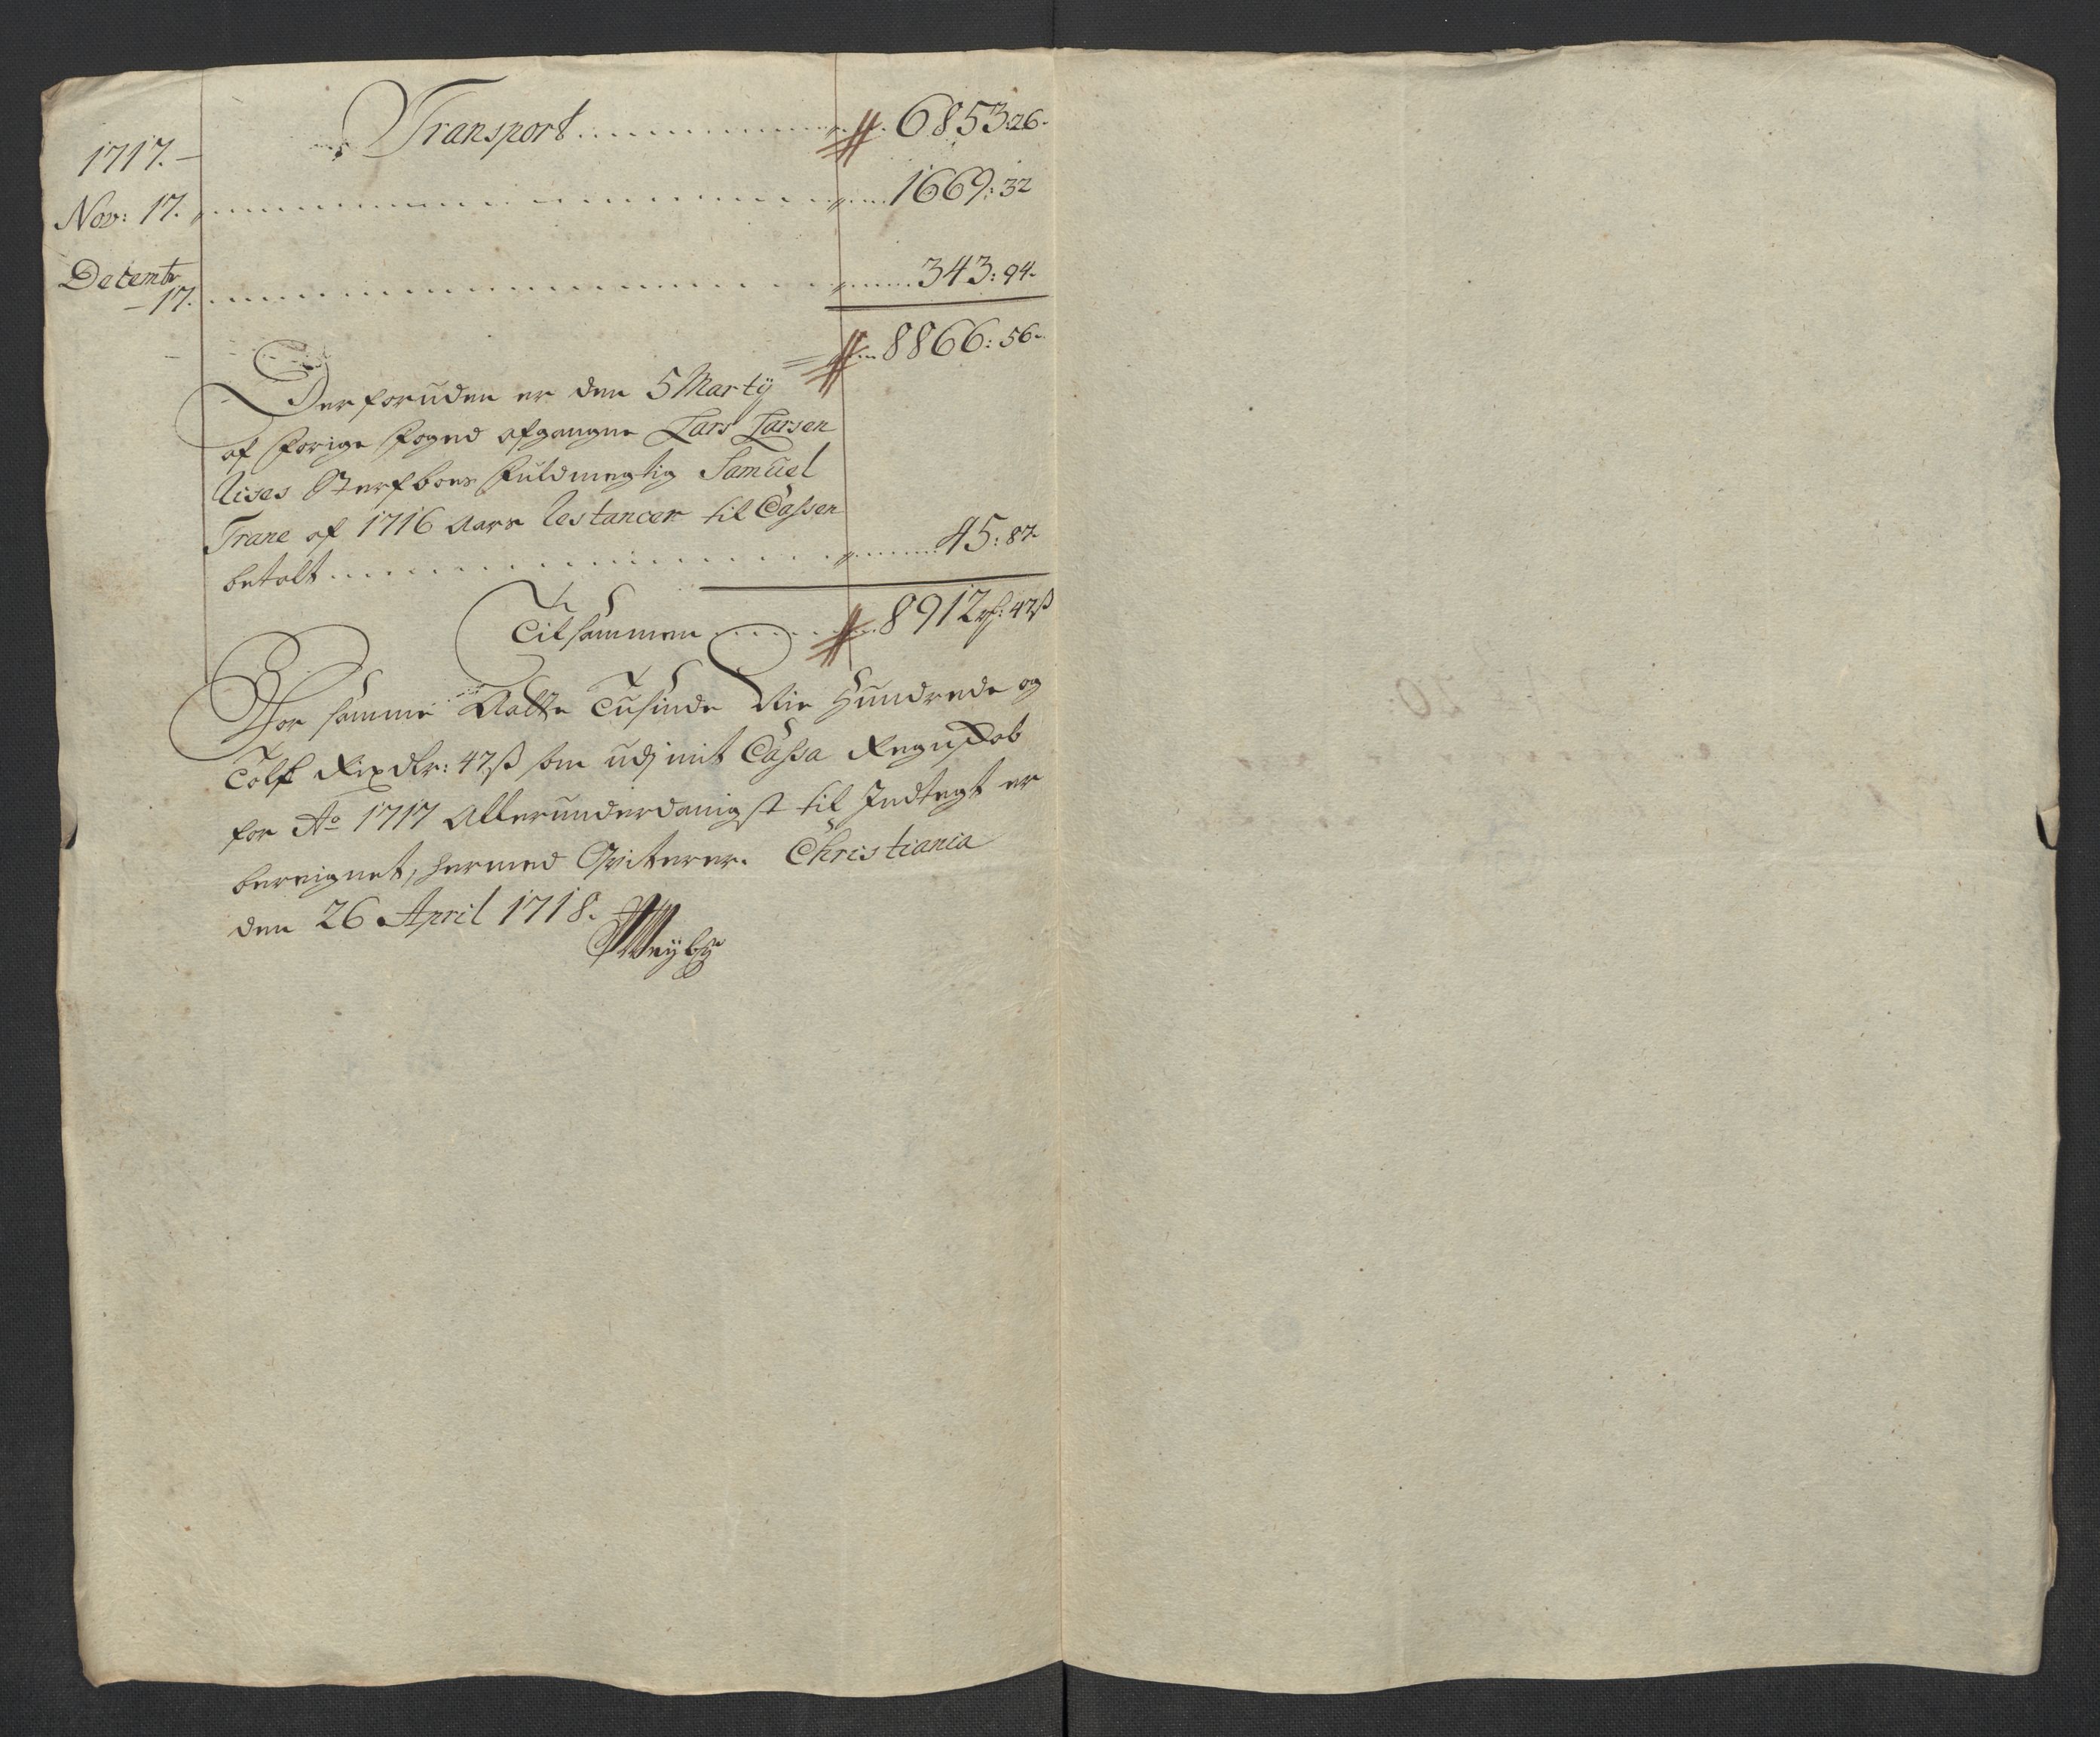 Transport ........ 6853:26.
1717.
Nov: 17. ........ 1669:32
Decembr
17. ........ 343:94.
8866:56.
Der foruden er den 5 Martÿ
af forige foged afgangne Lars Larsen
Rises Sterfboes fuldmegtig Samuel
Trane af 1716 Aars Restancer til Cassen
betalt ........ 45:87.
Tilsammen ........ 8912 rd: 47 ß
For samme Aatte Tusinde Nie Hundrede og
Tolf Rixdlr: 47 ß som udj mit Cassa Regnskab
for Ao 1717 Allerunderdanigst til Indtegt er
bereignet, hermed Qviterer. Christiania
den 26 April 1718.